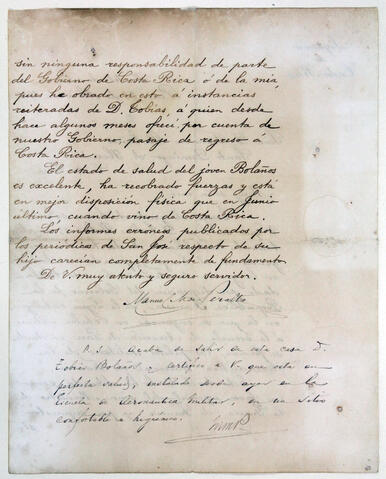 sin ninguna responsabilidad de parte
del Gobierno de Costa Rica ó de la mia
pues ha obrado en esto á instancias
reiteradas de D. Tobias, á quien desde
hace algunos meses ofrecí, por cuenta de
nuestro Gobierno, pasaje de regreso á
Costa Rica.
El estado de salud del joven Bolaños
es excelente, ha recobrado fuerzas y está
en mejor disposicion fisica que en Junio
ultimo, cuando vino de Costa Rica.
Los informes erróneos publicados por
los periodicos de San José respecto de su
hijo carecian completamente de fundamento.
De V. muy atento y seguro servidor.
Manuel M. de Peralta
P.S. Acaba de salir de esta casa D.
Tobias Bolaños y certifico a V. que esta en
perfecta salud, instalado desde ayer en la
Escuela de Aeronautica militar, en un sitio
confortable e higienico.